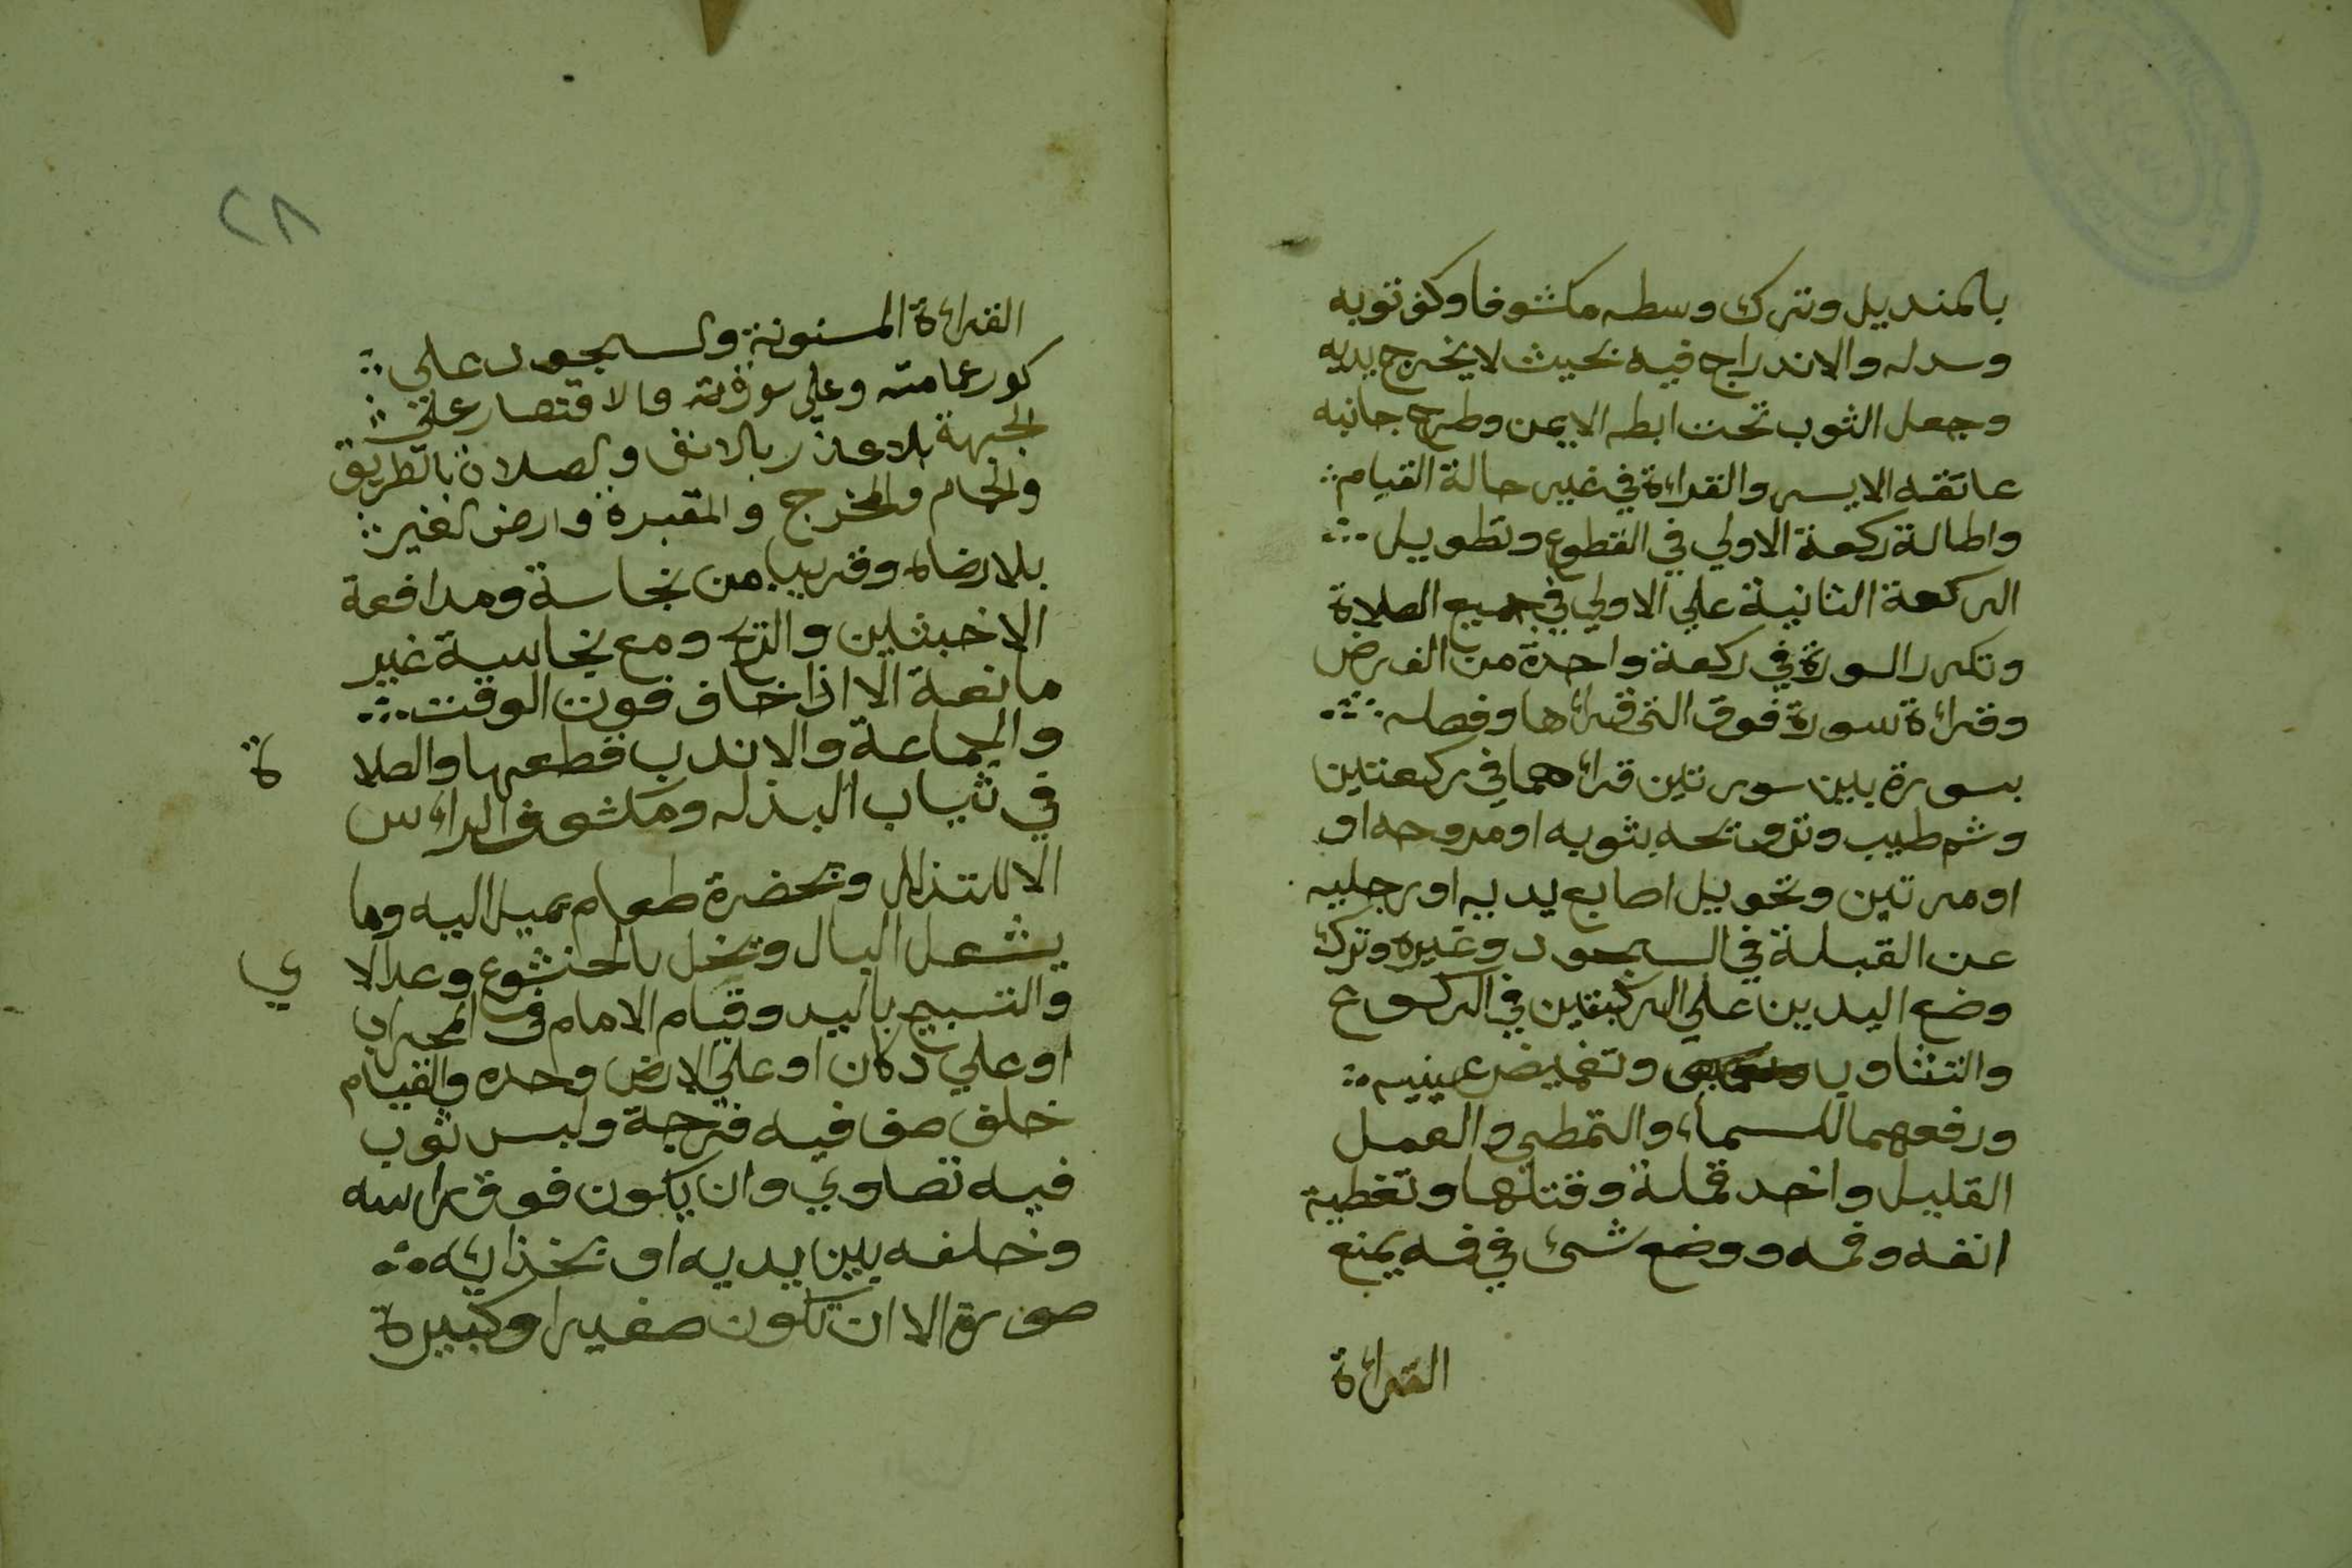 بالمنديل وترك وسطه مكشوفا وكف ثوبه
وسدله والاندراج فيه بحيث لا يخرج يديه
وجعل الثوب تحت ابطه الايمن وطرح جانبه
عاتقه الايسر والقراءة في غير حالة القيام
واطالة ركعة الاولي في التطوع وتطويل
الركعة الثانية علي الاولي في جميع الصلاة
وتكرر السورة في ركعة واحدة من الفرض
وقراءة سورة فوق التي قراءها وفصله
بسورة بين سورتين قراءهما في ركعتين
وشم طيب وتروحه بثوبه او مروحه او
او مرتين وتحويل اصابع يديه او رجليه
عن القبلة في السجود وغيره وترك
وضع اليدين علي الركبتين في الركوع
والتثاوب وتغميض عينيه
ورفعهما للسماء والتمطي والعمل
القليل واخد قملة وقتلها وتغطية
انفه وفمه ووضع شئ في فمه يمنع
القراءة
٢٨
القراءة المسنونة والسجود علي
كور عمامته وعلي صورة والاقتصار علي
الجبهة بلا عذر بالانف والصلاة بالطريق
والحمام والمخرج والمقبرة وارض الغير
بلا رضاه وقريبا من نجاسة ومدافعة
الاخبثين والريح ومع نجاسة غير
مانعة الا اذا خاف فوت الوقت
والجماعة والا ندب قطعها والصلا ة
في ثياب البذله ومكشوف الراءس
الا للتذلل وبحضرة طعام يميل اليه وما
يشعل البال وتخل بالخشوع وعد الا ي
والتسبيح باليد وقيام الامام في المحراب
او علي دكان او علي الارض وحده والقيام
خلف صف فيه فرجة ولبس ثوب
فيه تصاوي وان يكون فوق راسه
وخلفه بين يديه او بحذائه
صورة الا ان تكون صغيرا وكبيرة